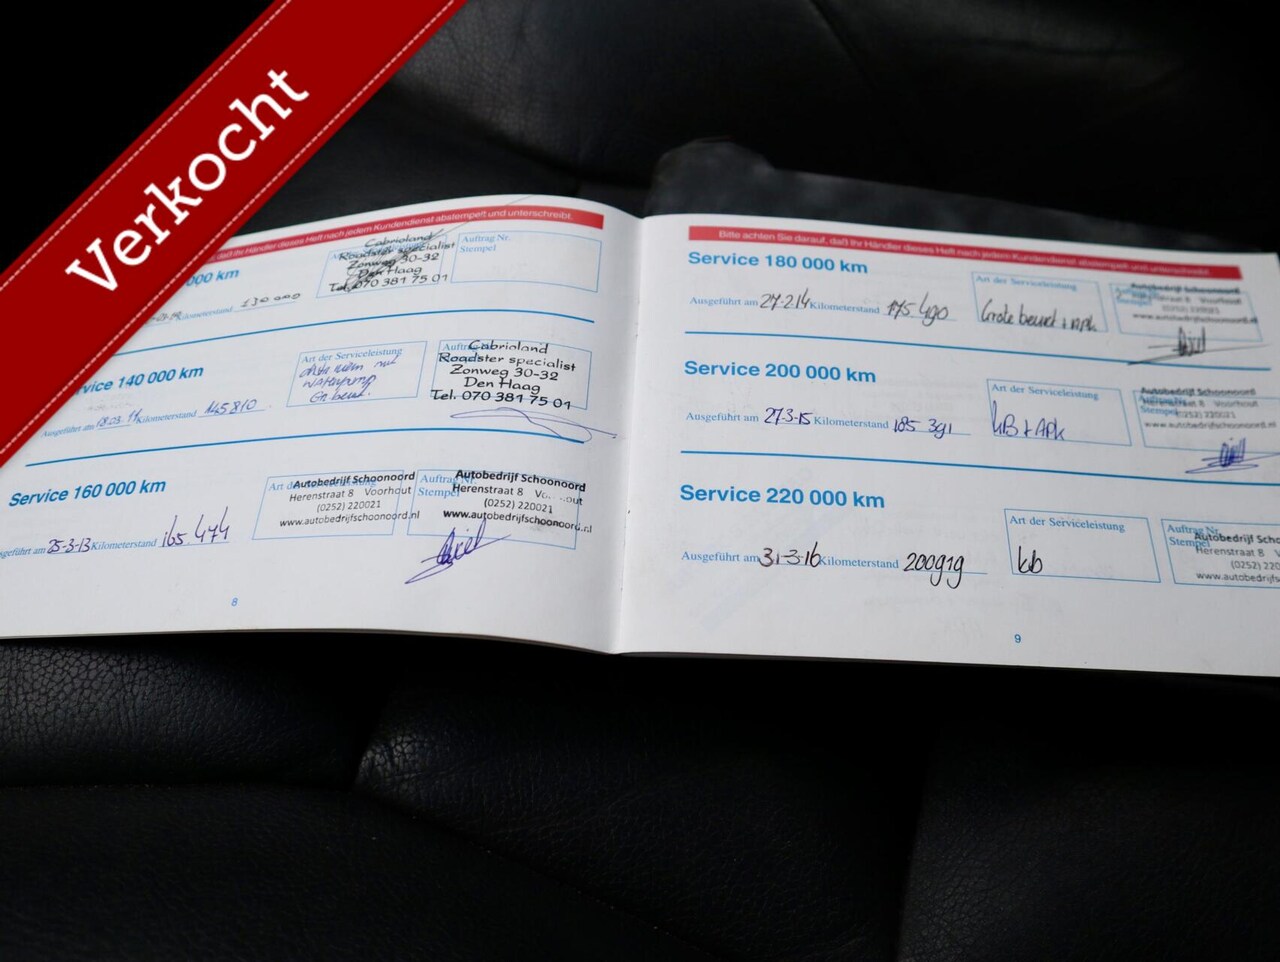 Verkocht
daß Ihr Händler dieses Heft nach jedem Kundendienst abstempelt und unterschreibt.
000 km
Kilometerstand 130 000
Cabrioland
Roadster specialist
Zonweg 30-32
Den Haag
Tel. 070 381 75 01
Auftrag Nr.
Stempel
vice 140 000 km
Ausgeführt am Kilometerstand 145810
Art der Serviceleistung
waterpomp
Cabrioland
Roadster specialist
Zonweg 30-32
Den Haag
Tel. 070 381 75 01
Service 160 000 km
sgeführt am 25-3-13 Kilometerstand 165.474
Autobedrijf Schoonoord
Herenstraat 8 Voorhout
(0252) 220021
www.autobedrijfschoonoord.nl
Auftrag Nr.
Stempel
Autobedrijf Schoonoord
Herenstraat 8
(0252) 220021
www.autobedrijfschoonoord.nl
8
Bitte achten Sie darauf, daß Ihr Händler dieses Heft nach jedem Kundendienst abstempelt und unterschreibt.
Service 180 000 km
Ausgeführt am 27-2-14 Kilometerstand 175.490
Art der Serviceleistung
Grote beurt + apk
Autobedrijf Schoonoord
Voorhout
www.autobedrijfschoonoord.nl
Service 200 000 km
Ausgeführt am 27-3-15 Kilometerstand 185 391
Art der Serviceleistung
KB + APK
Autobedrijf Schoonoord
Voorhout
(0252) 220021
www.autobedrijfschoonoord.nl
Service 220 000 km
Ausgeführt am 31-3-16 Kilometerstand 200919
Art der Serviceleistung
kb
Auftrag Nr.
Stempel
Autobedrijf Schoo
Herenstraat 8
(0252) 220
www.autobedrijfscho
9